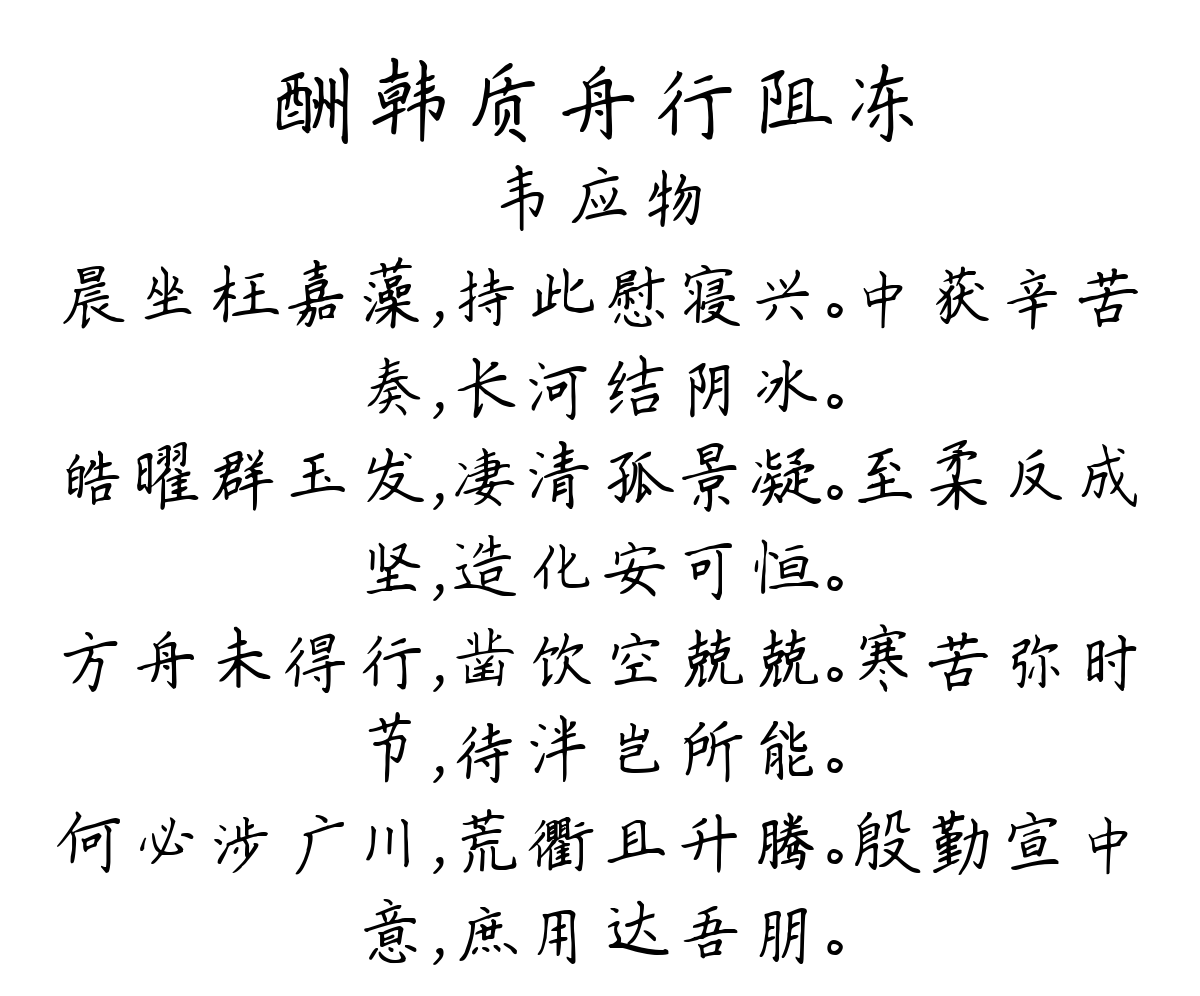 酬韩质舟行阻冻
韦应物
晨坐枉嘉藻,持此慰寝兴。中获辛苦
奏,长河结阴冰。
皓曜群玉发,凄清孤景凝。至柔反成
坚,造化安可恒。
方舟未得行,凿饮空兢兢。寒苦弥时
节,待泮岂所能。
何必涉广川,荒衢且升腾。殷勤宣中
意,庶用达吾朋。